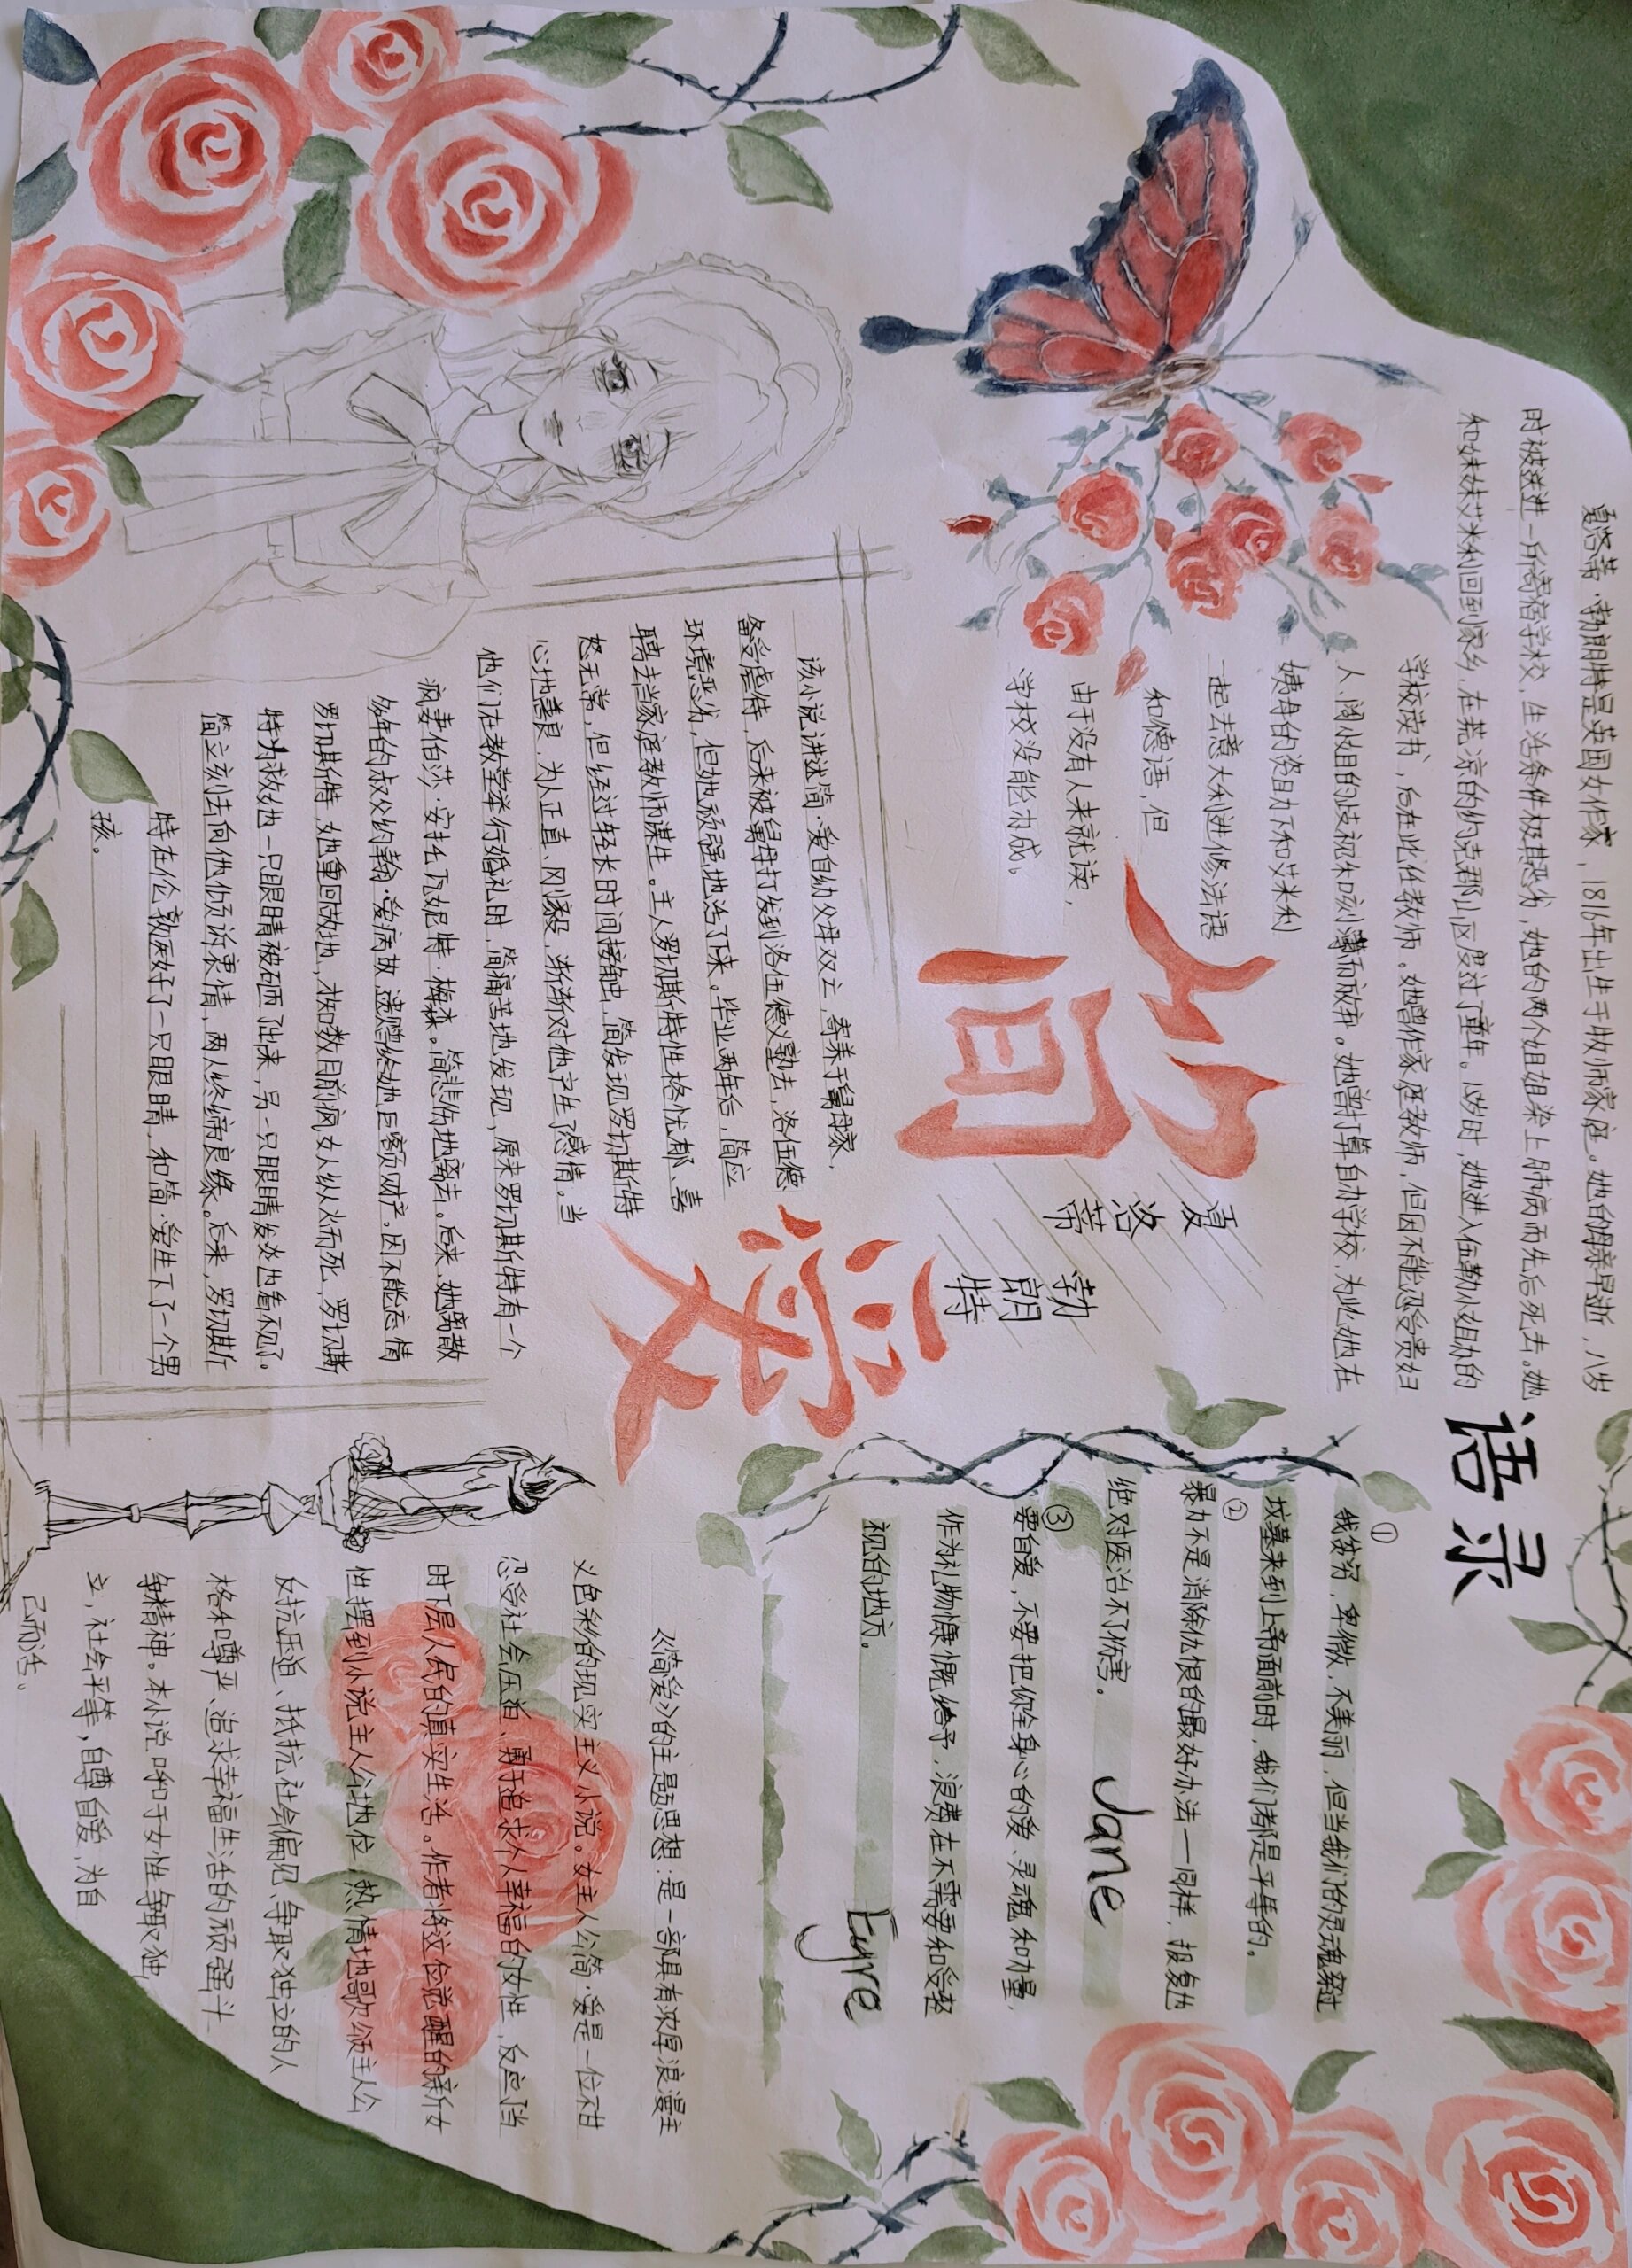 夏洛蒂·勃朗特是英国女作家，1816年出生于牧师家庭。她的母亲早逝，八岁
时被送进一所寄宿学校，生活条件极其恶劣，她的两个姐姐染上肺病而先后死去。她
和妹妹艾米利回到家乡，在荒凉的约克郡山区度过了童年。15岁时，她进入伍勒小姐办的
学校读书，后在此任教师。她曾作家庭教师，但因不能忍受贵妇
人、阔小姐的歧视和刻薄而放弃。她曾打算自办学校，为此她在
姨母的资助下和艾米利
一起去意大利进修法语
和德语，但
由于没有人来就读，
学校没能办成。
简
爱
夏洛蒂
勃朗特
该小说讲述简·爱自幼父母双亡，寄养于舅母家，
备受虐待，后来被舅母打发到洛伍德义塾去，洛伍德
环境恶劣，但她顽强地活了下来。毕业两年后，简应
聘去当家庭教师谋生。主人罗切斯特性格忧郁、喜
怒无常，但经过较长时间接触，简发现罗切斯特
心地善良，为人正直、刚毅，渐渐对他产生了感情。当
他们在教堂举行婚礼时，简痛苦地发现，原来罗切斯特有一个
疯妻伯莎·安托瓦妮特·梅森。简悲伤地离去。后来，她离散
多年的叔父约翰·爱病故，遗赠给她巨额财产，因不能忘情
罗切斯特，她重回故地，才知数日前疯女人纵火而死，罗切斯
特为救她一只眼睛被砸了出来，另一只眼睛发炎也看不见了。
简立刻去向他倾诉衷情，两人终缔良缘。后来，罗切斯
特在伦敦医好了一只眼睛，和简·爱生下了一个男
孩。
语录
①
我贫穷，卑微，不美丽，但当我们的灵魂穿过
坟墓来到上帝面前时，我们都是平等的。
②
暴力不是消除仇恨的最好办法——同样，报复也
绝对医治不了伤害。
③
要自爱，不要把你全身心的爱、灵魂和力量，
作为礼物慷慨给予，浪费在不需要和受轻
视的地方。
Jane
Eyre
《简爱》的主题思想：是一部具有浓厚浪漫主
义色彩的现实主义小说。女主人公简·爱是一位不甘
忍受社会压迫、勇于追求个人幸福的女性，反应当
时下层人民的真实生活。作者将这位觉醒的新女
性摆到小说主人公地位，热情地歌颂主人公
反抗压迫、抵抗社会偏见、争取独立的人
格和尊严、追求幸福生活的顽强斗
争精神。本小说呼吁女性争取独
立，社会平等，自尊自爱，为自
己而活。